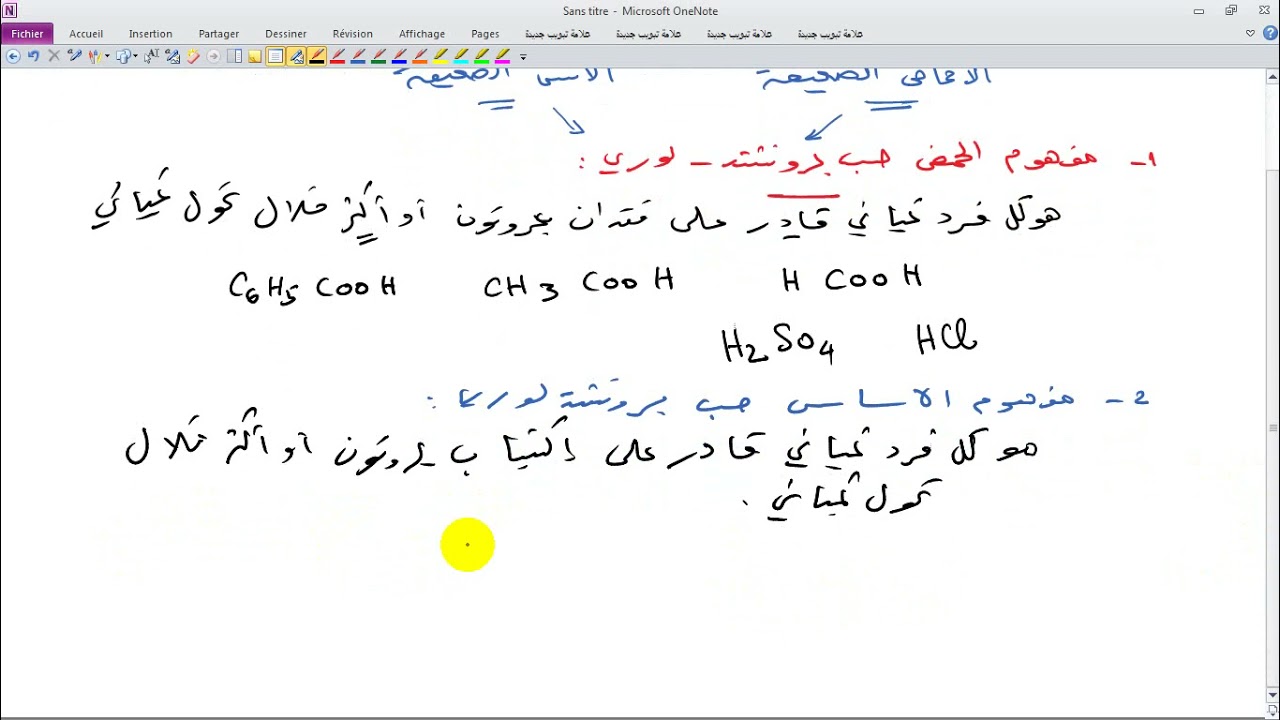 Sans titre - Microsoft OneNote
Fichier Accueil Insertion Partager Dessiner Révision Affichage Pages علامة تبويب جديدة علامة تبويب جديدة علامة تبويب جديدة علامة تبويب جديدة
الاحماض الضعيفة الأسس الضعيفة
1- مفهوم الحمض حسب برونشتد - لوري :
هو كل فرد كيميائي قادر على فقدان بروتون أو أكثر خلال تحول كيميائي
H COOH CH3 COOH C6H5 COOH
HCl H2SO4
2- مفهوم الاساس حسب برونشتد لوري :
هو كل فرد كيميائي قادر على اكتساب بروتون أو أكثر خلال
تحول كيميائي .